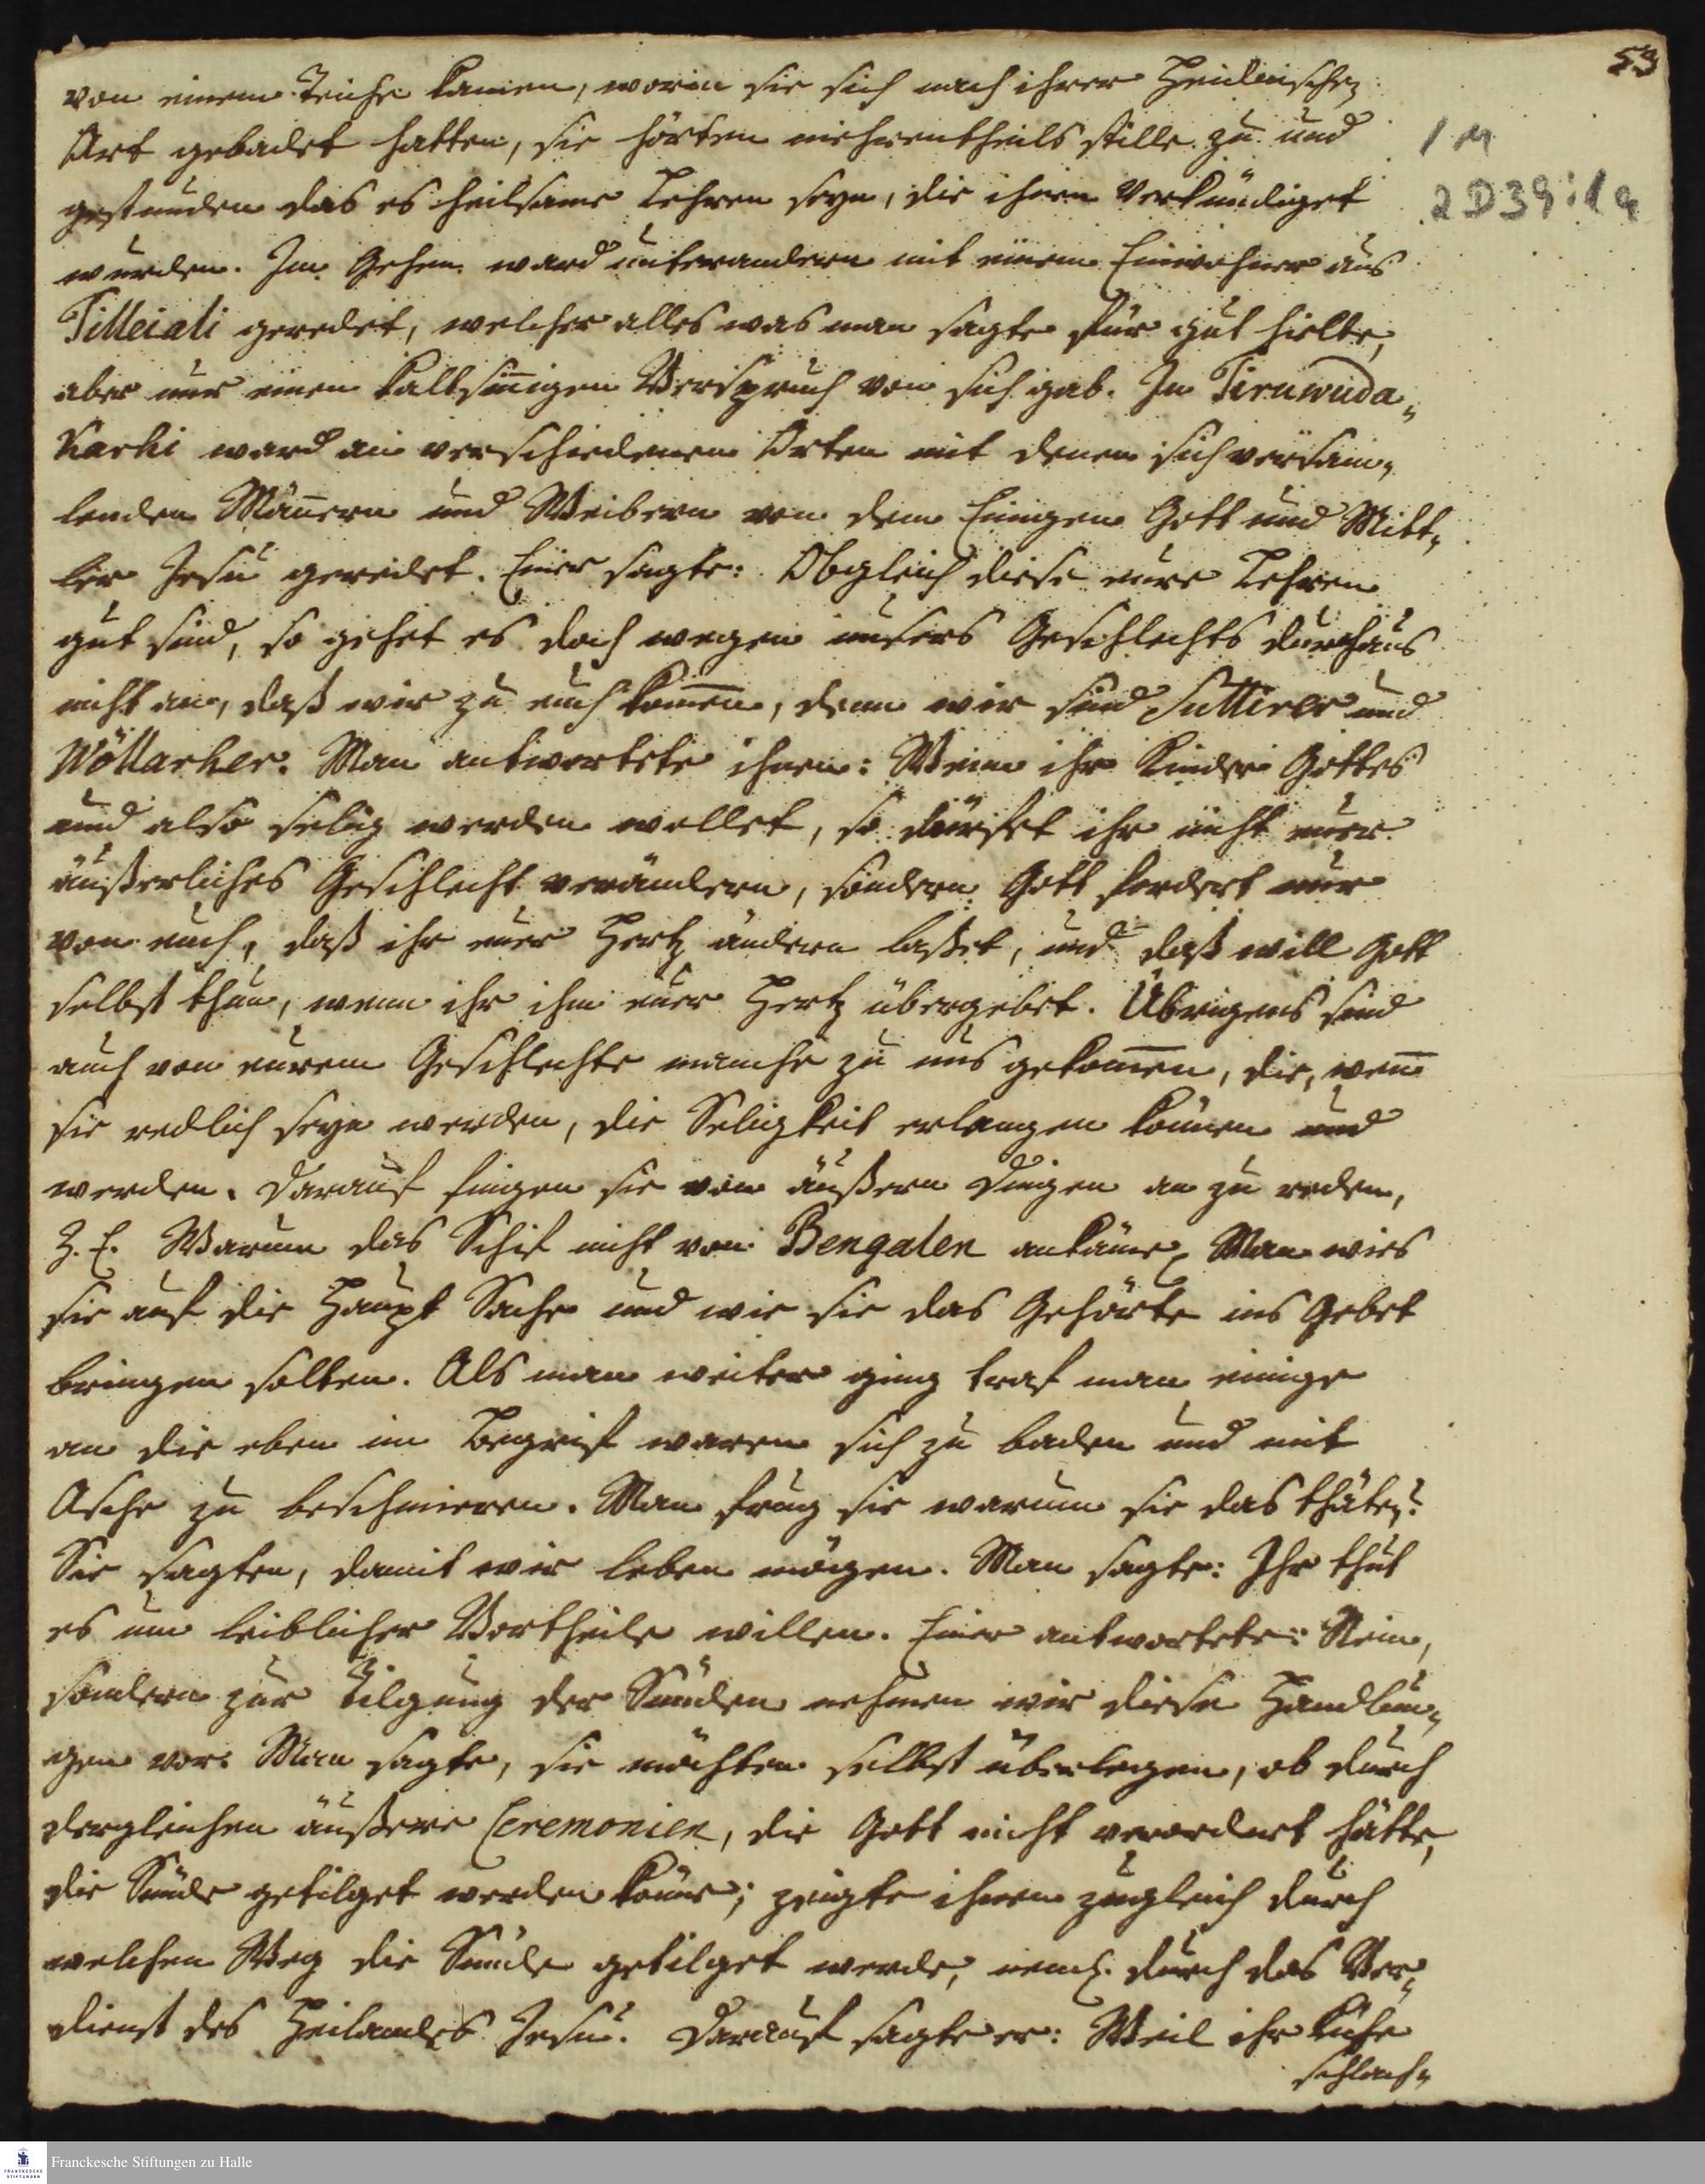 53
von einem Teiche kamen, worin sie sich nach ihrer Heidnischen
Art gebadet hatten, sie hörten mehrentheils stille zu und
gestunden das es heilsame Lehren seyn, die ihnen verkündiget
wurden. Im Gehen ward unterandern mit einem Einwohner aus
Tilleiali geredet, welcher alles was man sagte für gut hielte,
aber nur einen kaltsinnigen Verspruch von sich gab. In Tiruwuda„
Karhi ward an verschiedenen Orten mit denen sich versam„
lenden Männern und Weibern von dem Einigen Gott und Mitt„
ler Jesu geredet. Einer sagte: Obgleich diese eure Lehren
gut sind, so gehet es doch wegen unsers Geschlechts durchaus
nicht an, daß wir zu euch kommen, denn wir sind Suttirer und
Wöllarher. Man antwortete ihnen: Wenn ihr Kinder Gottes
und also selig werden wollet, so dürfet ihr nicht euer
äußerliches Geschlecht verändern, sondern Gott fordert nur
von euch, daß ihr euer Hertz ändern laßet, und daß will Gott
selbst thun, wenn ihr ihm euer Hertz übergebet. Übrigens sind
auch von eurem Geschlechte manche zu uns gekommen, die, wenn
sie redlich seyn werden, die Seligkeit erlangen können und
werden. Darauf fingen sie von äußern Dingen an zu reden,
Z. E. Warum das Schif nicht von Bengalen ankäme. Man wies
sie auf die Haupt Sache und wie sie das Gehörte ins Gebet
bringen solten. Als man weiter ging traf man einige
an die eben im Begrif waren sich zu baden und mit
Asche zu beschmieren. Man frug sie warum sie das thäten?
Sie sagten, damit wir leben mögen. Man sagte: Ihr thut
es um leiblicher Vortheile willen. Einer antwortete: Nein,
sondern zur Tilgung der Sünden nehmen wir diese Handlun„
gen vor. Man sagte, sie möchten selbst überlegen, ob durch
dergleichen äußere Ceremonien, die Gott nicht verordnet hätte,
die Sünde getilget werden könne; zeigte ihnen zugleich durch
welchen Weg die Sünde getilget werde, neml. durch das Ver„
dienst des Heilandes Jesu. Darauf sagte er: Weil ihr Kühe
schlach„
1 M
2 D 39 : 1 a
Franckesche Stiftungen zu Halle